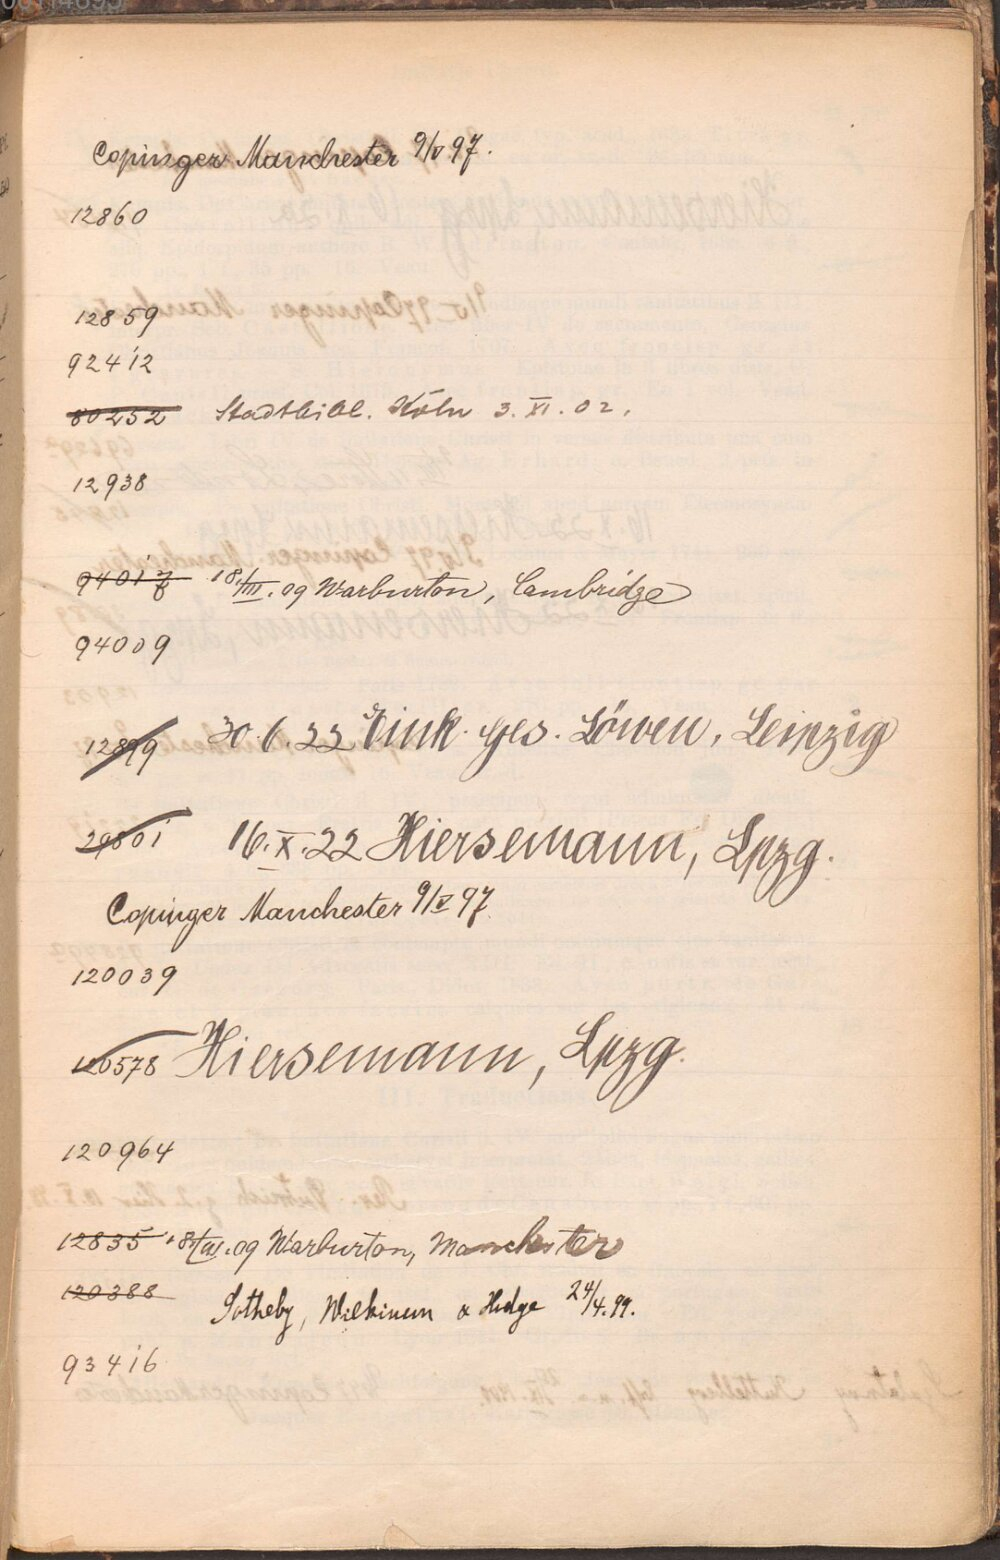 Copinger Manchester 9/V 97.
12860
12859
92412
80252 Stadtbibl. Köln 3. XI. 02.
12938
94017 18./III. 09 Warburton, Cambridge
94009
12899 30.6.22 Eink. Ges. Löwen, Leipzig
29801 16.X.22 Hiersemann, Lpzg.
Copinger Manchester 9/V 97
120039
120578 Hiersemann, Lpzg.
120964
12835 09 Warburton, Manchester
120388 Sotheby, Wilkinson & Hodge 24/4.99.
93416